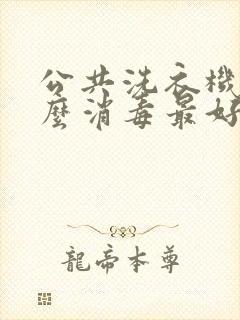 公共洗衣機
麼消毒最好
龍帝本尊